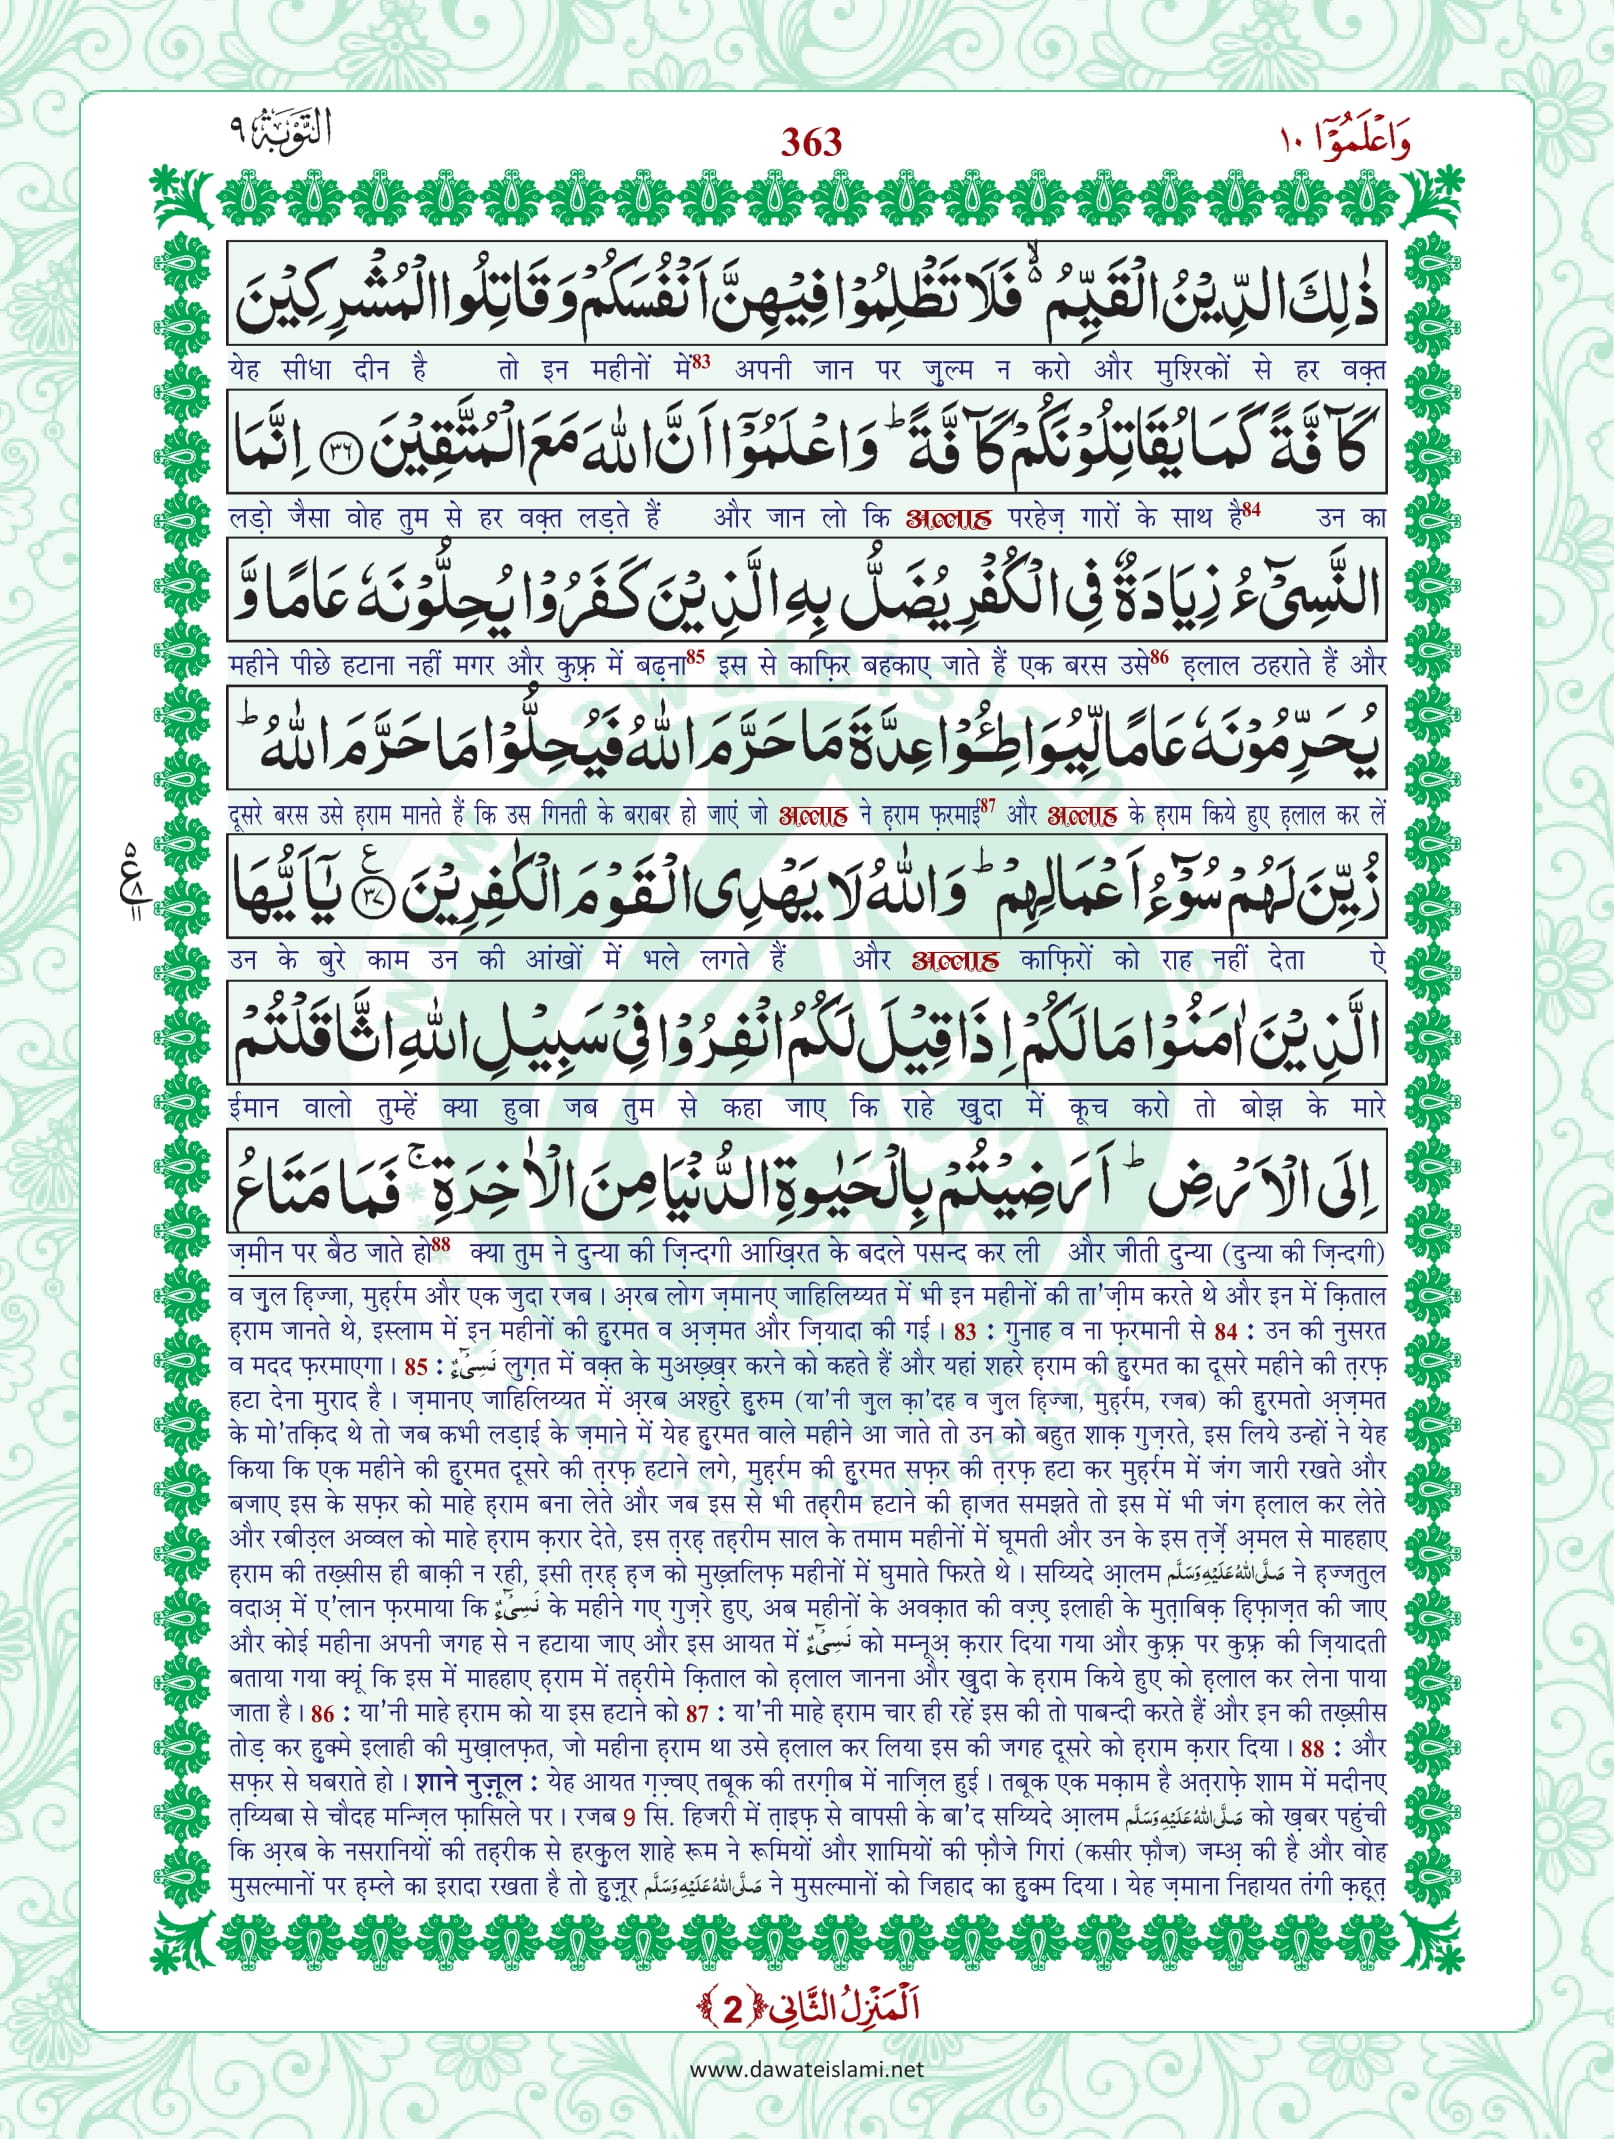 وَاعْلَمُوْۤا ١٠
363
التَّوْبَة ٩
ذٰلِكَ الدِّیْنُ الْقَیِّمُ ۙ۬ فَلَا تَظْلِمُوْا فِیْهِنَّ اَنْفُسَكُمْ وَ قَاتِلُوا الْمُشْرِكِیْنَ
येह सीधा दीन है तो इन महीनों में83 अपनी जान पर ज़ुल्म न करो और मुश्रिकों से हर वक़्त
كَآفَّةً كَمَا یُقَاتِلُوْنَكُمْ كَآفَّةً ؕ وَ اعْلَمُوْۤا اَنَّ اللّٰهَ مَعَ الْمُتَّقِیْنَ ﴿٣٦﴾ اِنَّمَا
लड़ो जैसा वोह तुम से हर वक़्त लड़ते हैं और जान लो कि अल्लाह परहेज़ गारों के साथ है84 उन का
النَّسِیْٓءُ زِیَادَةٌ فِی الْكُفْرِ یُضَلُّ بِهِ الَّذِیْنَ كَفَرُوْا یُحِلُّوْنَهٗ عَامًا وَّ
महीने पीछे हटाना नहीं मगर और कुफ़्र में बढ़ना85 इस से काफ़िर बहकाए जाते हैं एक बरस उसे86 ह़लाल ठहराते हैं और
یُحَرِّمُوْنَهٗ عَامًا لِّیُوَاطِــٴُـوْا عِدَّةَ مَا حَرَّمَ اللّٰهُ فَیُحِلُّوْا مَا حَرَّمَ اللّٰهُ ؕ
दूसरे बरस उसे ह़राम मानते हैं कि उस गिनती के बराबर हो जाएं जो अल्लाह ने ह़राम फ़रमाई87 और अल्लाह के ह़राम किये हुए ह़लाल कर लें
زُیِّنَ لَهُمْ سُوْٓءُ اَعْمَالِهِمْ ؕ وَ اللّٰهُ لَا یَهْدِی الْقَوْمَ الْكٰفِرِیْنَ ﴿٣٧﴾ ع یٰۤاَیُّهَا
٥ ع ٨ ١١
उन के बुरे काम उन की आंखों में भले लगते हैं और अल्लाह काफ़िरों को राह नहीं देता ऐ
الَّذِیْنَ اٰمَنُوْا مَا لَكُمْ اِذَا قِیْلَ لَكُمُ انْفِرُوْا فِیْ سَبِیْلِ اللّٰهِ اثَّاقَلْتُمْ
ईमान वालो तुम्हें क्या हुवा जब तुम से कहा जाए कि राहे ख़ुदा में कूच करो तो बोझ के मारे
اِلَى الْاَرْضِ ؕ اَرَضِیْتُمْ بِالْحَیٰوةِ الدُّنْیَا مِنَ الْاٰخِرَةِ ۚ فَمَا مَتَاعُ
ज़मीन पर बैठ जाते हो88 क्या तुम ने दुन्या की ज़िन्दगी आख़िरत के बदले पसन्द कर ली और जीती दुन्या (दुन्या की ज़िन्दगी)
व ज़ुल हि़ज्जा, मुह़र्रम और एक जुदा रजब । अ़रब लोग ज़मानए जाहिलिय्यत में भी इन महीनों की ता'ज़ीम करते थे और इन में क़िताल
ह़राम जानते थे, इस्लाम में इन महीनों की ह़ुरमत व अ़ज़मत और ज़ियादा की गई । 83 : गुनाह व ना फ़रमानी से 84 : उन की नुसरत
व मदद फ़रमाएगा । 85 : نَسِیْٓءٌ लुग़त में वक़्त के मुअख़्ख़र करने को कहते हैं और यहां शहरे ह़राम की ह़ुरमत का दूसरे महीने की त़रफ़
हटा देना मुराद है । ज़मानए जाहिलिय्यत में अ़रब अश्हुरे ह़ुरुम (या'नी ज़ुल क़ा'दह व ज़ुल हि़ज्जा, मुह़र्रम, रजब) की ह़ुरमतो अ़ज़मत
के मो'तक़िद थे तो जब कभी लड़ाई के ज़माने में येह ह़ुरमत वाले महीने आ जाते तो उन को बहुत शाक़ गुज़रते, इस लिये उन्हों ने येह
किया कि एक महीने की ह़ुरमत दूसरे की त़रफ़ हटाने लगे, मुह़र्रम की ह़ुरमत सफ़र की त़रफ़ हटा कर मुह़र्रम में जंग जारी रखते और
बजाए इस के सफ़र को माहे ह़राम बना लेते और जब इस से भी तह़रीम हटाने की ह़ाजत समझते तो इस में भी जंग ह़लाल कर लेते
और रबीउ़ल अव्वल को माहे ह़राम क़रार देते, इस त़रह़ तह़रीम साल के तमाम महीनों में घूमती और उन के इस त़र्ज़े अ़मल से माहहाए
ह़राम की तख़्सीस ही बाक़ी न रही, इसी त़रह़ ह़ज को मुख़्तलिफ़ महीनों में घुमाते फिरते थे । सय्यिदे आ़लम صَلَّی اللّٰهُ عَلَیْهِ وَسَلَّم ने ह़ज्जतुल
वदाअ़ में ए'लान फ़रमाया कि نَسِیْٓءٌ के महीने गए गुज़रे हुए, अब महीनों के अवक़ात की वज़्ए़ इलाही के मुत़ाबिक़ ह़िफ़ाज़त की जाए
और कोई महीना अपनी जगह से न हटाया जाए और इस आयत में نَسِیْٓءٌ को मम्नूअ़ क़रार दिया गया और कुफ़्र पर कुफ़्र की ज़ियादती
बताया गया क्यूं कि इस में माहहाए ह़राम में तह़रीमे क़िताल को ह़लाल जानना और ख़ुदा के ह़राम किये हुए को ह़लाल कर लेना पाया
जाता है । 86 : या'नी माहे ह़राम को या इस हटाने को 87 : या'नी माहे ह़राम चार ही रहें इस की तो पाबन्दी करते हैं और इन की तख़्सीस
तोड़ कर ह़ुक्मे इलाही की मुख़ालफ़त, जो महीना ह़राम था उसे ह़लाल कर लिया इस की जगह दूसरे को ह़राम क़रार दिया । 88 : और
सफ़र से घबराते हो । शाने नुज़ूल : येह आयत ग़ज़्वए तबूक की तरग़ीब में नाज़िल हुई । तबूक एक मक़ाम है अत़राफ़े शाम में मदीनए
त़य्यिबा से चौदह मन्ज़िल फ़ासिले पर । रजब 9 सि. हिजरी में त़ाइफ़ से वापसी के बा'द सय्यिदे आ़लम صَلَّی اللّٰهُ عَلَیْهِ وَسَلَّم को ख़बर पहुंची
कि अ़रब के नसरानियों की तह़रीक से हरकुल शाहे रूम ने रूमियों और शामियों की फ़ौजे गिरां (कसीर फ़ौज) जम्अ़ की है और वोह
मुसल्मानों पर ह़म्ले का इरादा रखता है तो ह़ुज़ूर صَلَّی اللّٰهُ عَلَیْهِ وَسَلَّم ने मुसल्मानों को जिहाद का ह़ुक्म दिया । येह ज़माना निहायत तंगी क़ह़त़
اَلْمَنْزِلُ الثَّانِی ﴿2﴾
www.dawateislami.net